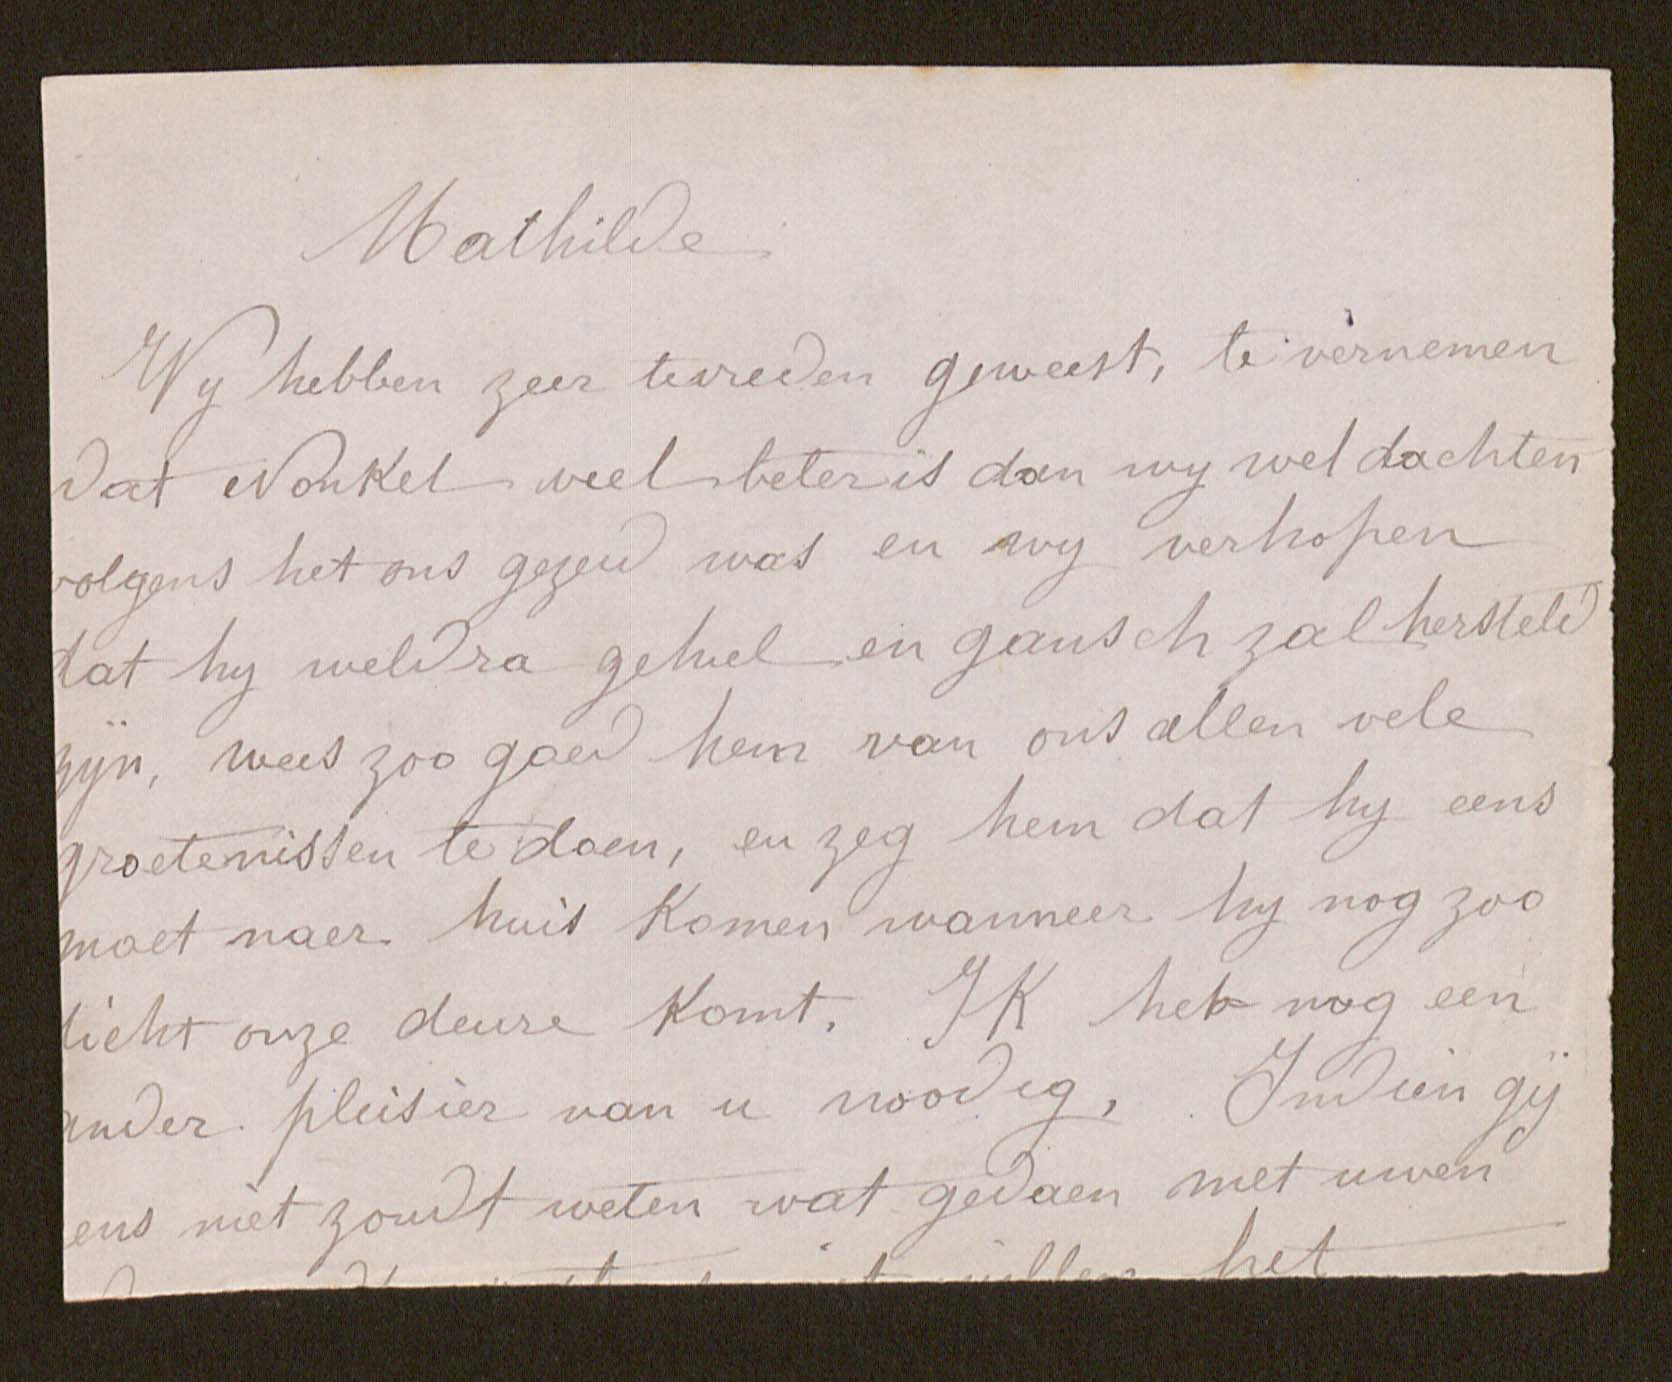 Mathilde
Wy hebben zeer tevreden geweest, te vernemen
dat Nonkel veel beter is dan wy wel dachten
volgens het ons gezeid was en wy verhopen
dat hy weldra geheel en gansch zal hersteld
zÿn, wees zoo goed hem van ons allen vele
groetenissen te doen, en zeg hem dat hy eens
moet naer huis komen wanneer hy nog zoo
dicht onze deure komt. Ik heb nog een
ander pleisier van u noodig, Indien gÿ
eens niet zoudt weten wat gedaen met uwen
willen het